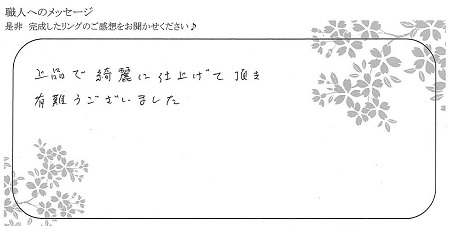 職人へのメッセージ
是非 完成したリングのご感想をお聞かせください♪
上品で綺麗に仕上げて頂き
有難うございました